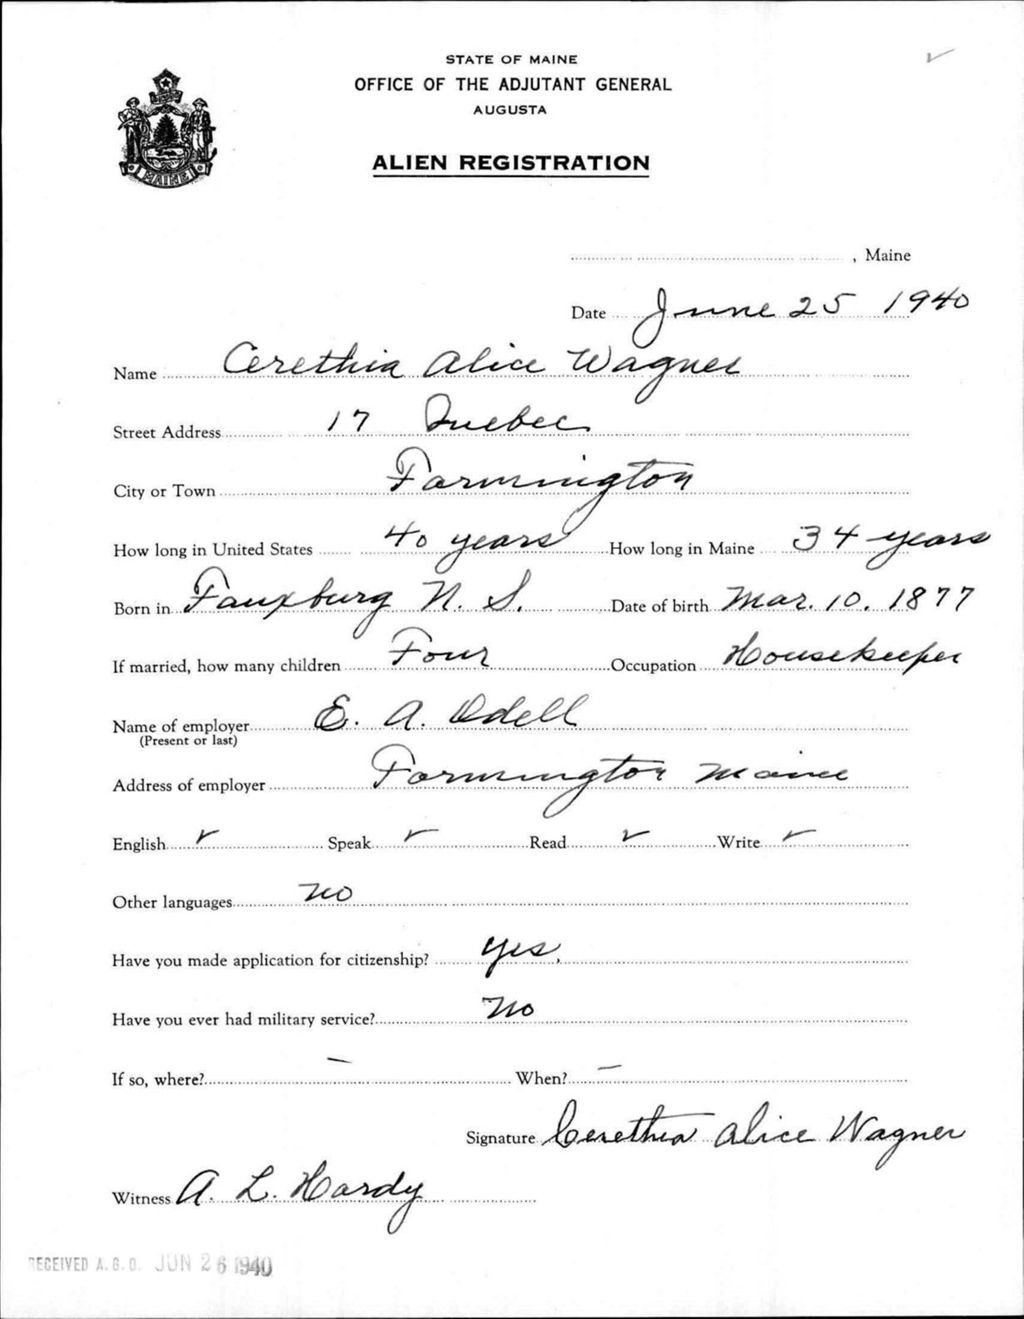 STATE OF MAINE
OFFICE OF THE ADJUTANT GENERAL
AUGUSTA
MAINE
ALIEN REGISTRATION
, Maine
Date June 25 1940
Name Cerethia Alice Wagner
Street Address 17 Quebec
City or Town Farmington
How long in United States 40 years How long in Maine 34 years
Born in Fauxburg N. S. Date of birth Mar. 10. 1877
If married, how many children Four Occupation Housekeeper
Name of employer E. A. Odell
(Present or last)
Address of employer Farmington Maine
English ✓ Speak ✓ Read ✓ Write ✓
Other languages No
Have you made application for citizenship? yes.
Have you ever had military service? No
If so, where? — When? —
Signature Cerethia Alice Wagner
Witness A. L. Hardy
RECEIVED A. G. O. JUN 26 1940